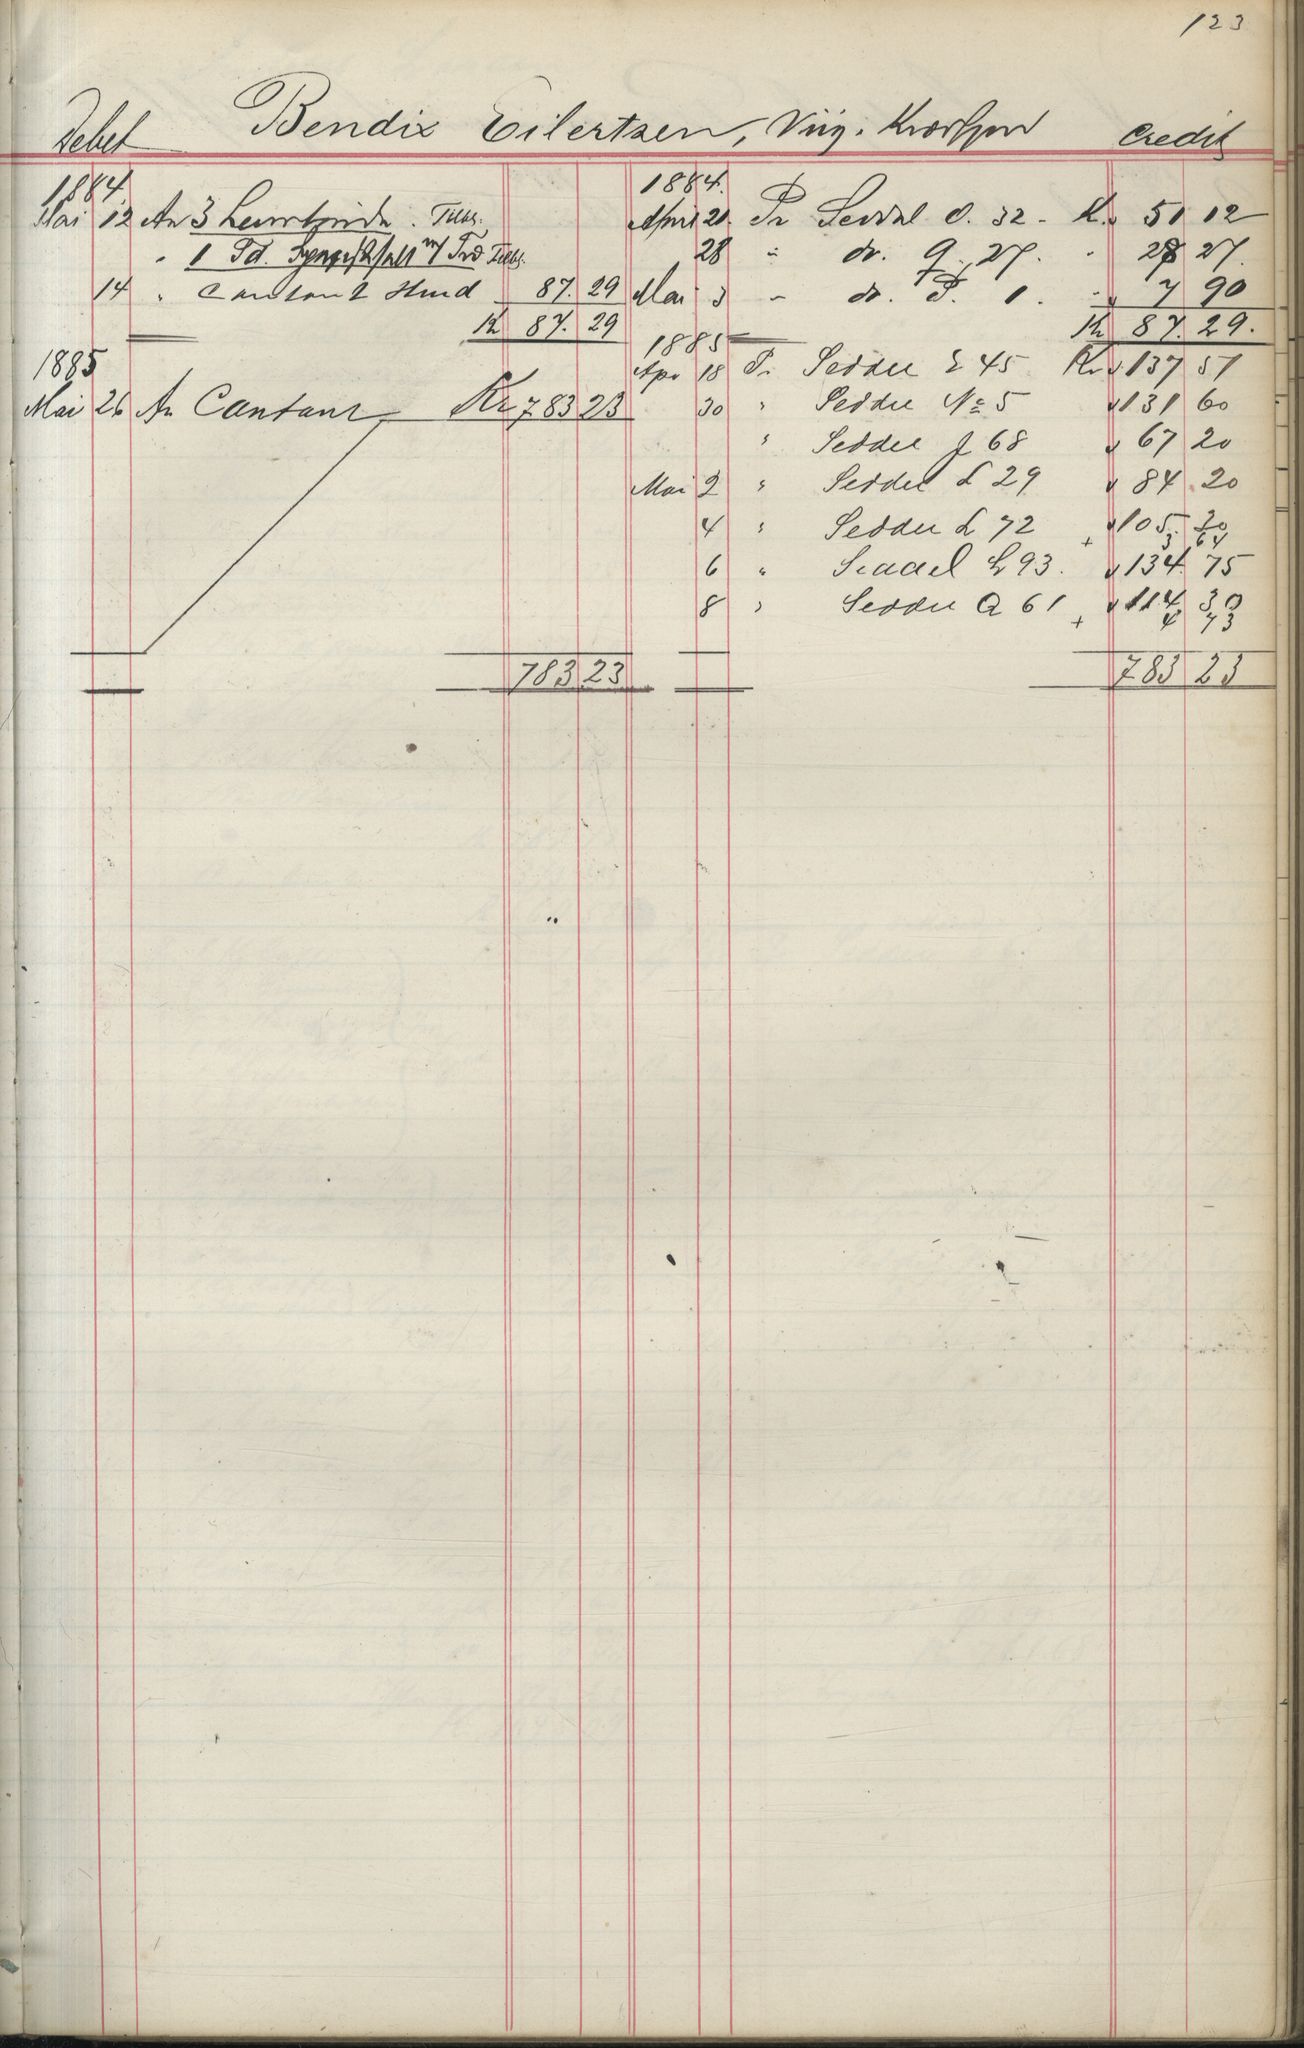 123
Debet Bendix Eilertsen, Viig. Credit
1884.
Mai 12 An 3 Tilbg.
" 1 Td. m/ Tilbg.
14 " Contant 87. 29
Kr 87. 29
1885
Mai 26 An Contant Kr 783 23
783 23
1884.
April 21. Pr Seddel O. 32 - Kr 51 12
28 " do. Q. 27. " 28 27.
Mai 3 " do. P. 1. " 7 90
Kr 87. 29.
1885
Apr 18 Pr Seddel 45 Kr 137 51
30 " Seddel No 5 131 60
" Seddel J 68 67 20
Mai 2 " Seddel L 29 84. 20
4 " Seddel L 72 105. 30
+ 3 64
6 " Seddel 93. 134. 75
8 " Seddel Q 61 114 30
+ 4 73
783 23